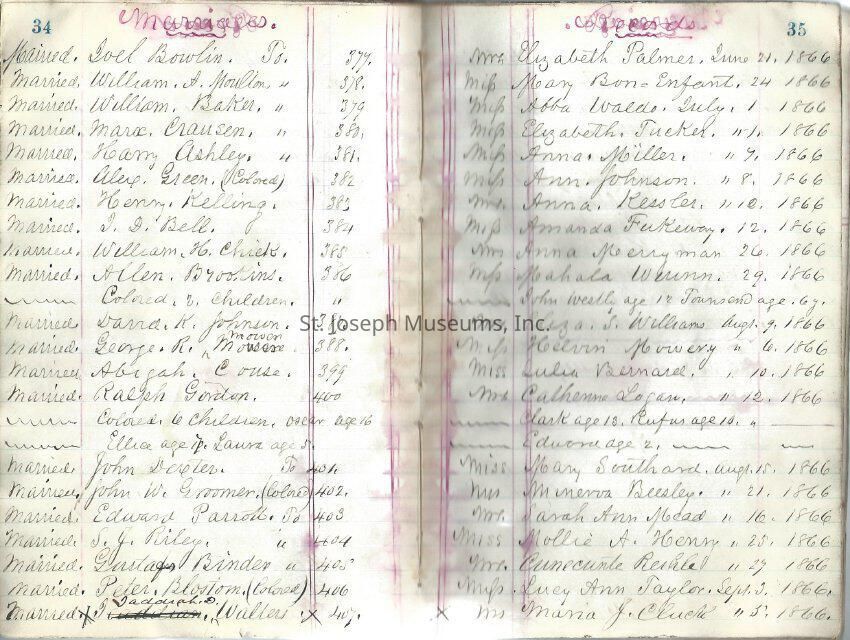 34 Marriages.
Married. Joel Bowlin. To. 377.
Married. William. A. Moulton " 378.
Married. William. Baker. " 379
Married. Marx. Clausen. " 380.
Married. Harry Ashley. " 381.
Married. Alex. Green. (Colored) 382
Married. Henry. Kelling. 383
Married. J. D. Bell. 384
Married. William. H. Chick. 385
Married. Allen. Brookins. 386
Colored. 2. Children. "
Married. David. K. Johnson.
Married. George. R. Mowen 388.
Married. Abigah. Couse. 399
Married. Ralph Gordon. 400
Colored. 6 Children. Oscar age 16
Ellice age 7. Laura age 5.
Married. John Dexter. To 401.
Married. John W. Groomer. (Colored) 402.
Married. Edward Parrott. To 403
Married. S. J. Riley. " 404
Married. Gustaf Binder " 405
Married. Peter. Blostom. (Colored) 406
Married. X Walters X 407.
35
Mrs. Elizabeth Palmer. June 21. 1866
Miss Mary Bon-Enfant. 24 1866
Miss Abba Waldo. July. 1 1866
Miss Elizabeth. Tucker. " 1. 1866
Miss Anna. Miller. " 7. 1866
Miss Ann. Johnson. " 8. 1866
Anna. Kessler. " 10. 1866
Miss Amanda Fukeway. 12. 1866
Mrs Anna Merryman 26. 1866
Miss Mahala Wunn. 29. 1866
John Westly age 12 Townsend age. 6 y.
Eliza. S. Williams Augt. 9. 1866
Miss Helvin Mowery " 6. 1866
Miss Lulu Bernard. " 10. 1866
Mrs Catherine Logan. " 12. 1866
Clark age 13. Rufus age 10. "
Edward age 2.
Miss Mary Southard. Augt. 15. 1866
Mrs Minerva Beesley. " 21. 1866
Mrs. Sarah Ann Mead " 16. 1866
Miss Mollie A. Henry " 23. 1866
Mrs. Cunecunte Reichle " 27 1866
Miss. Lucy Ann Taylor. Sept. 3. 1866
X Mrs Maria J. Cluck " 5. 1866.
St. Joseph Museums, Inc.